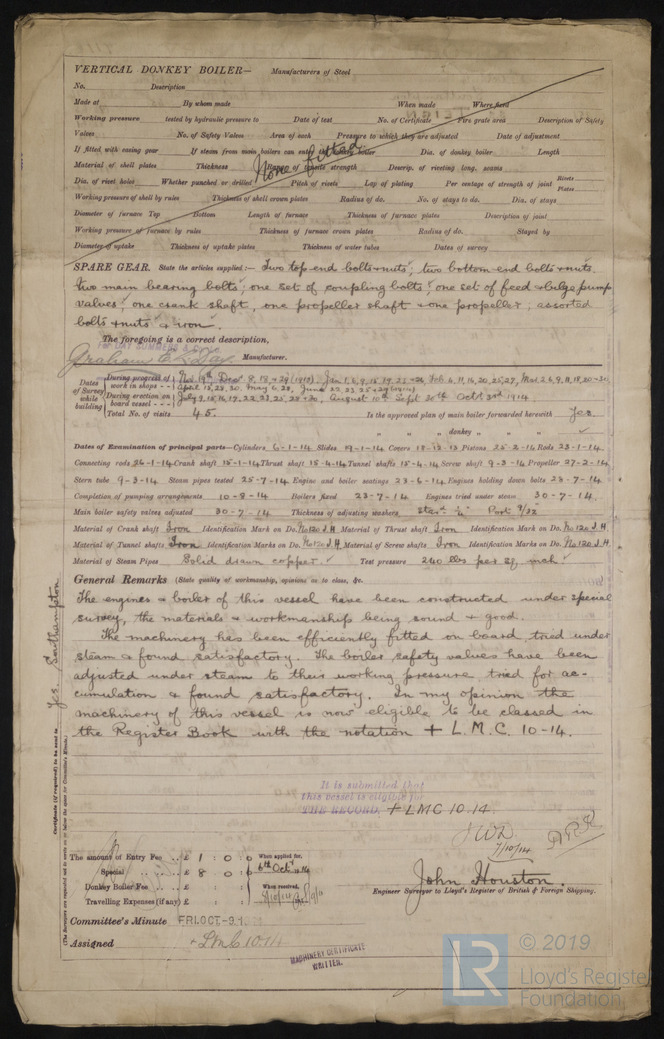 VERTICAL DONKEY BOILER— Manufacturers of Steel
No. Description
Made at By whom made When made Where fixed
Working pressure tested by hydraulic pressure to Date of test No. of Certificate Fire grate area Description of Safety
Valves No. of Safety Valves Area of each Pressure to which they are adjusted Date of adjustment
If fitted with easing gear If steam from main boilers can enter the donkey boiler Dia. of donkey boiler Length
Material of shell plates Thickness Range of tensile strength Descrip. of riveting long. seams
None fitted
Dia. of rivet holes Whether punched or drilled Pitch of rivets Lap of plating Per centage of strength of joint Rivets Plates
Working pressure of shell by rules Thickness of shell crown plates Radius of do. No. of stays to do. Dia. of stays
Diameter of furnace Top Bottom Length of furnace Thickness of furnace plates Description of joint
Working pressure of furnace by rules Thickness of furnace crown plates Radius of do. Stayed by
Diameter of uptake Thickness of uptake plates Thickness of water tubes Dates of survey
SPARE GEAR. State the articles supplied:— Two top end bolts & nuts, two bottom end bolts & nuts
two main bearing bolts, one set of coupling bolts, one set of feed & bilge pump
valves, one crank shaft, one propeller shaft & one propeller, assorted
bolts & nuts & iron.
The foregoing is a correct description,
FOR DAY SUMMERS &
Manufacturer.
Dates of Survey while building
During progress of work in shops - -
During erection on board vessel - - -
August 10th Sept 30th Oct 3rd 1914
Total No. of visits 45. Is the approved plan of main boiler forwarded herewith Yes
" " donkey " "
Dates of Examination of principal parts—Cylinders 6-1-14 Slides 19-1-14 Covers 18-12-13 Pistons 25-2-14 Rods 23-1-14
Connecting rods 26-1-14 Crank shaft 15-1-14 Thrust shaft 15-4-14 Tunnel shafts 15-4-14 Screw shaft 9-3-14 Propeller 27-2-14
Stern tube 9-3-14 Steam pipes tested 25-7-14 Engine and boiler seatings 23-6-14 Engines holding down bolts 23-7-14
Completion of pumping arrangements 10-8-14 Boilers fixed 23-7-14 Engines tried under steam 30-7-14
Main boiler safety valves adjusted 30-7-14 Thickness of adjusting washers Port 9/32
Material of Crank shaft Iron Identification Mark on Do. No 120 J.H Material of Thrust shaft Iron Identification Mark on Do. No 120 J.H
Material of Tunnel shafts Iron Identification Marks on Do. No 120 J.H Material of Screw shafts Iron Identification Marks on Do. No 120 J.H
Material of Steam Pipes Solid drawn copper Test pressure 240 lbs per sq. inch
General Remarks (State quality of workmanship, opinions as to class, &c.
The engines & boiler of this vessel have been constructed under special
survey, the materials & workmanship being sound & good.
The machinery has been efficiently fitted on board, tried under
steam & found satisfactory. The boiler safety valves have been
adjusted under steam to their working pressure, tried for ac-
cumulation & found satisfactory. In my opinion the
machinery of this vessel is now eligible to be classed in
the Register Book with the notation + L.M.C. 10-14.
Certificate (if required) to be sent to Yes. Southampton
(The Surveyors are requested not to write on or below the space for Committee's Minute.)
It is submitted that
this vessel is eligible for
THE RECORD. + LMC 10.14.
J.W.D.
7/10/14
The amount of Entry Fee .. £ 1 : 0 : 0 When applied for,
Special .. £ 8 : 0 : 0 6th Oct 1914
Donkey Boiler Fee .. £ : : When received,
Travelling Expenses (if any) £ : :
John Houston.
Engineer Surveyor to Lloyd's Register of British & Foreign Shipping.
Committee's Minute FRI. OCT. - 9. 1
Assigned + LMC 10.14
MACHINERY CERTIFICATE
WRITTEN.
LR
© 2019
Lloyd's Register
Foundation